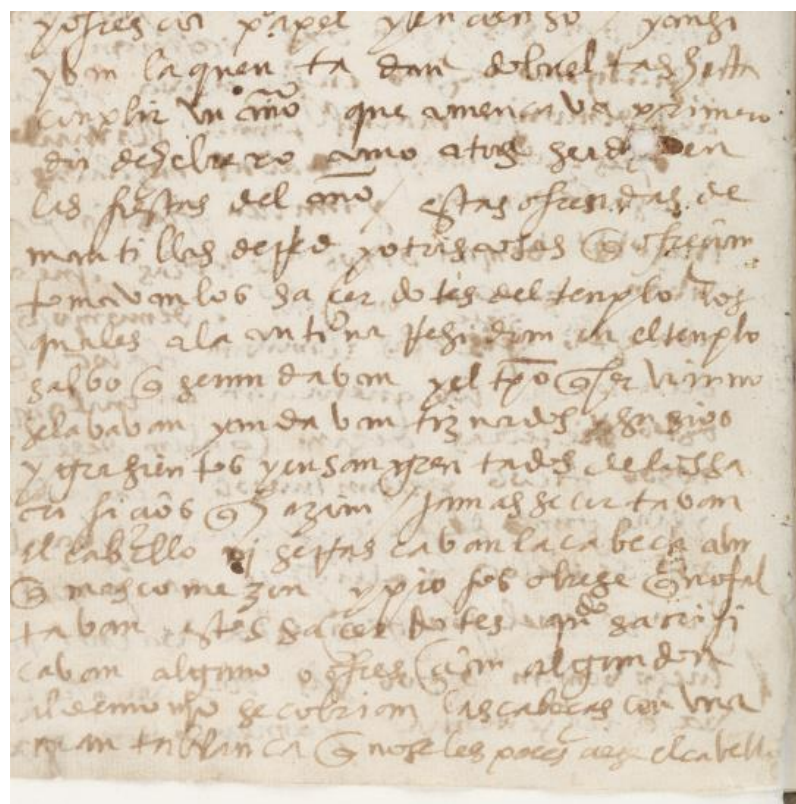 yofrescia papel y encienso yansi
yvan la quenta dan dobueltas hasta
cunplir un año que comencava primero
dia de hebrero
las fiestas del año / estas ofrendas de
mantillas de y otras cosas q ofrecian
tomavan los sacerdotes del templo los
quales a la contina rresidian en el templo
salvo q se mudavan y el tpo q servian no
se lavavan y andavan tiznados y suzios
y grasientos y ensangrentados de los sa
crificios q hazian / jamas se cortavan
el cabello ni se rrascavan la cabeça aun
q mas comezon y piojos obiese q no fal
tavan estos sacerdotes qdo sacrifi
cavan alguno o ofrescian algun don
al demonio se cobrian las cabeças con una
manta blanca q no se les paresciese el cabello